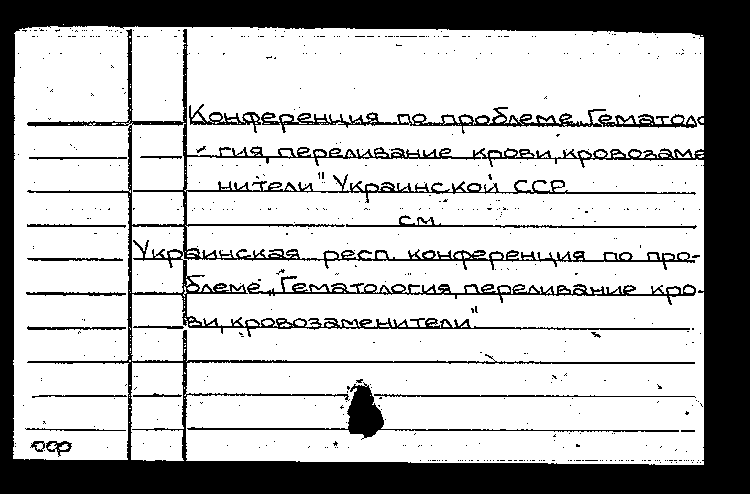 Конференция по проблеме „Гематоло
гия, переливание крови, кровозаме
нители" Украинской ССР
см.
Украинская респ. конференция по про-
блеме „Гематология, переливание кро-
ви, кровозаменители"